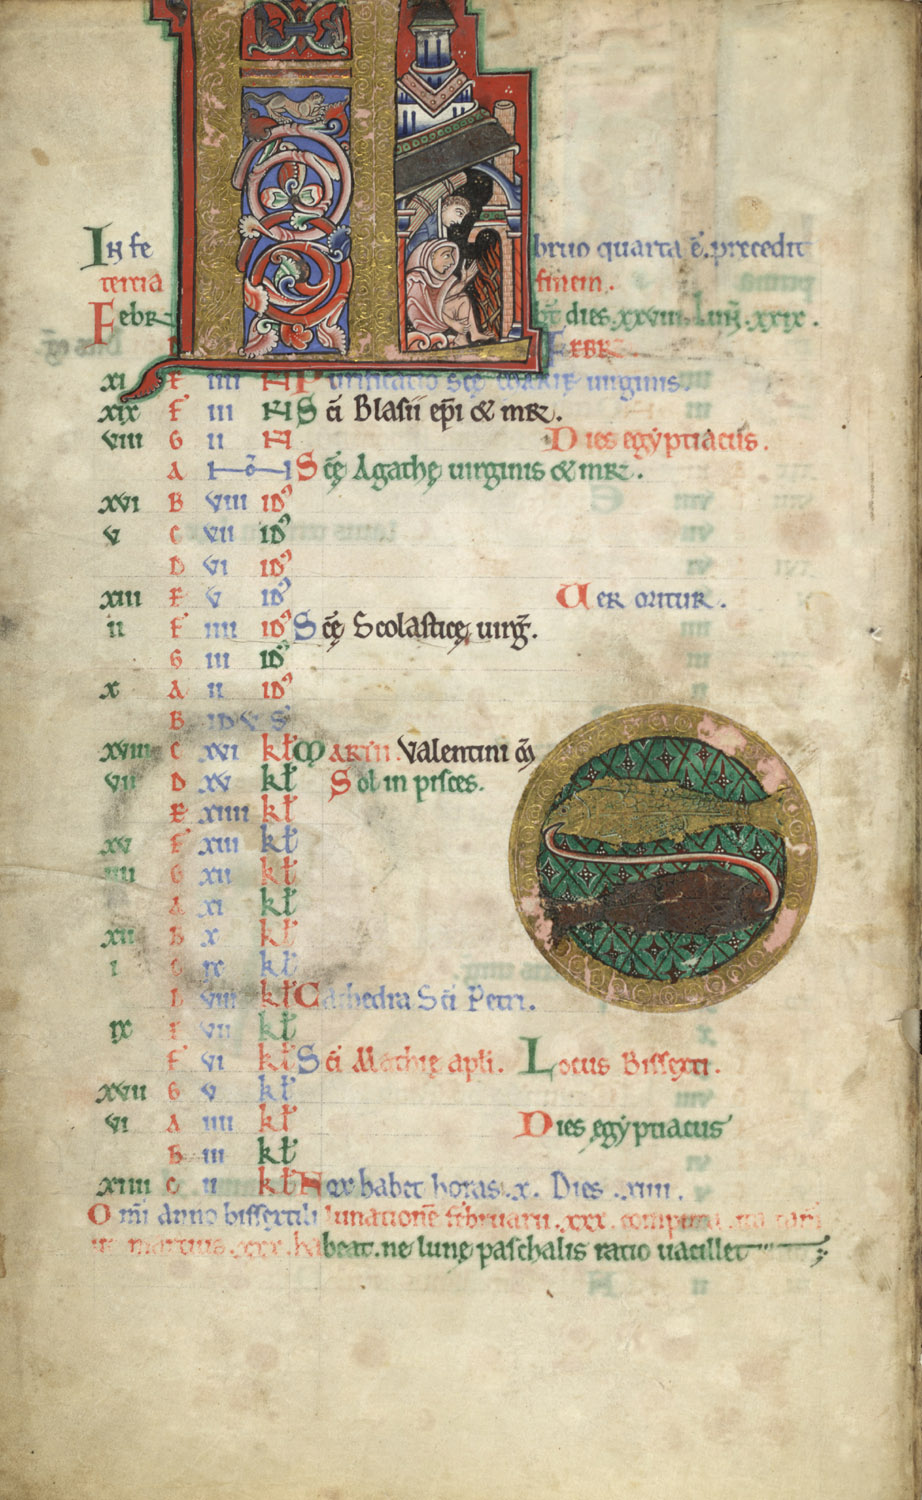 In fe bruo quarta ē. precedit
tercia finem.
Febr bt dies. xxviii. Lun̄. xxix.
F EBR
xi E iiii N Purificatio Scē MARIE uirginis
xix F iii N Sci Blasii ep̄i & mr̄.
viii G ii N Dies egẏptiacus.
A Nō Scē Agathę uirginis & mr̄.
xvi B viii id'
v C vii id'
D vi id'
xiii E v id' Uer oritur.
ii F iiii id' Scē Scolasticę uirḡ.
G iii id'
x A ii id'
B idvs
xviii C xvi kł Martii. Valentini m̄
vii D xv kł Sol in pisces.
E xiiii kł
xv F xiii kł
iiii G xii kł
A xi kł
xii B x kł
i C ix kł
D viii kł Cathedra Sci Petri.
ix E vii kł
F vi kł Sci Mathię apli. Locus Bissexti.
xvii G v kł
vi A iiii kł Dies egẏptiacus
B iii kł
xiiii C ii kł Nox habet horas. x. Dies. xiiii.
Omi anno bissextili lunationē februarii. xxx. computa. ita tam
martius. xxx. habeat. ne lunę paschalis ratio uacillet